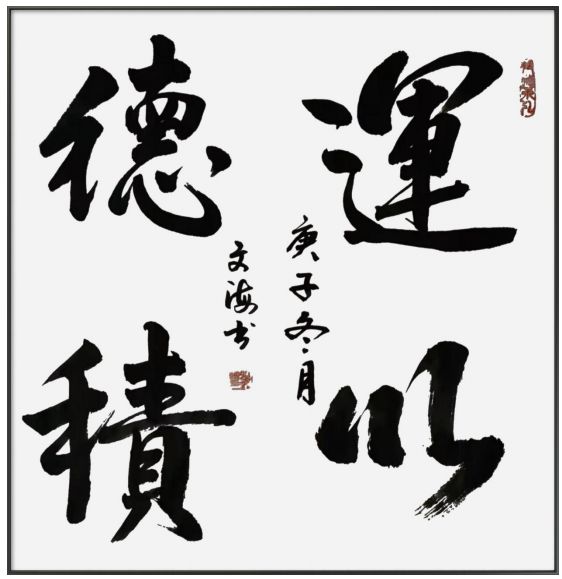 運以
德積
庚子冬月
文海书